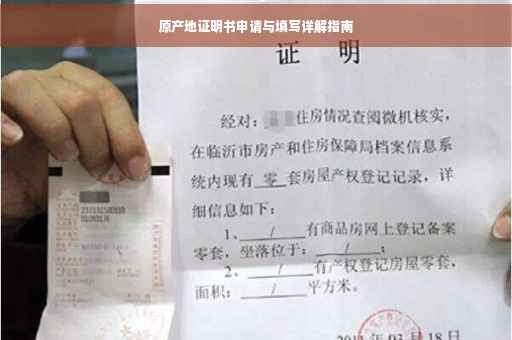 原产地证明书申请与填写详解指南
证 明
经对：住房情况查阅微机核实，
在临沂市房产和住房保障局档案信息系
统内现有 零 套房屋产权登记记录，详
细信息如下：
1、 / 有商品房网上登记备案
零套，坐落位于： / ；
2、 / 有产权登记房屋零套，
面积： / 平方米。
年 03 月 18 日